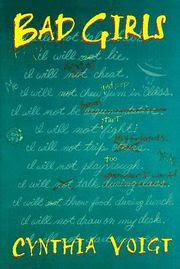 BAD GIRLS
I will not lie.
I will not cheat.
I will not chew gum in class.
help
I will not be argumentative.
start
I will not fight!
my husbands.
I will not trip
too
I will not play rough.
whenever I want!
I will not talk during class.
I will not throw food during lunch.
I will not draw on my desk.
I will
CYNTHIA VOIGT